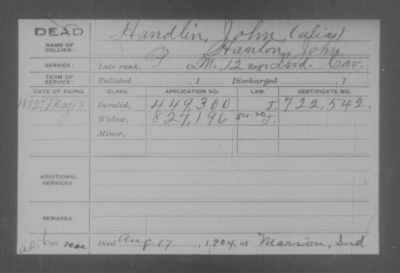 DEAD
NAME OF SOLDIER: Handlin, John (alias)
Hanlon, John
SERVICE: Late rank, P Co M. 12 Reg't Ind. Cav.
TERM OF SERVICE: Enlisted , 1 Discharged , 1
DATE OF FILING. CLASS. APPLICATION NO. LAW. CERTIFICATE NO.
1882 May Invalid, 449,360 J. 722,542.
Widow, 827,196 J.
Minor,
ADDITIONAL SERVICES:
REMARKS:
Died Aug 17, 1904, at Marion, Ind